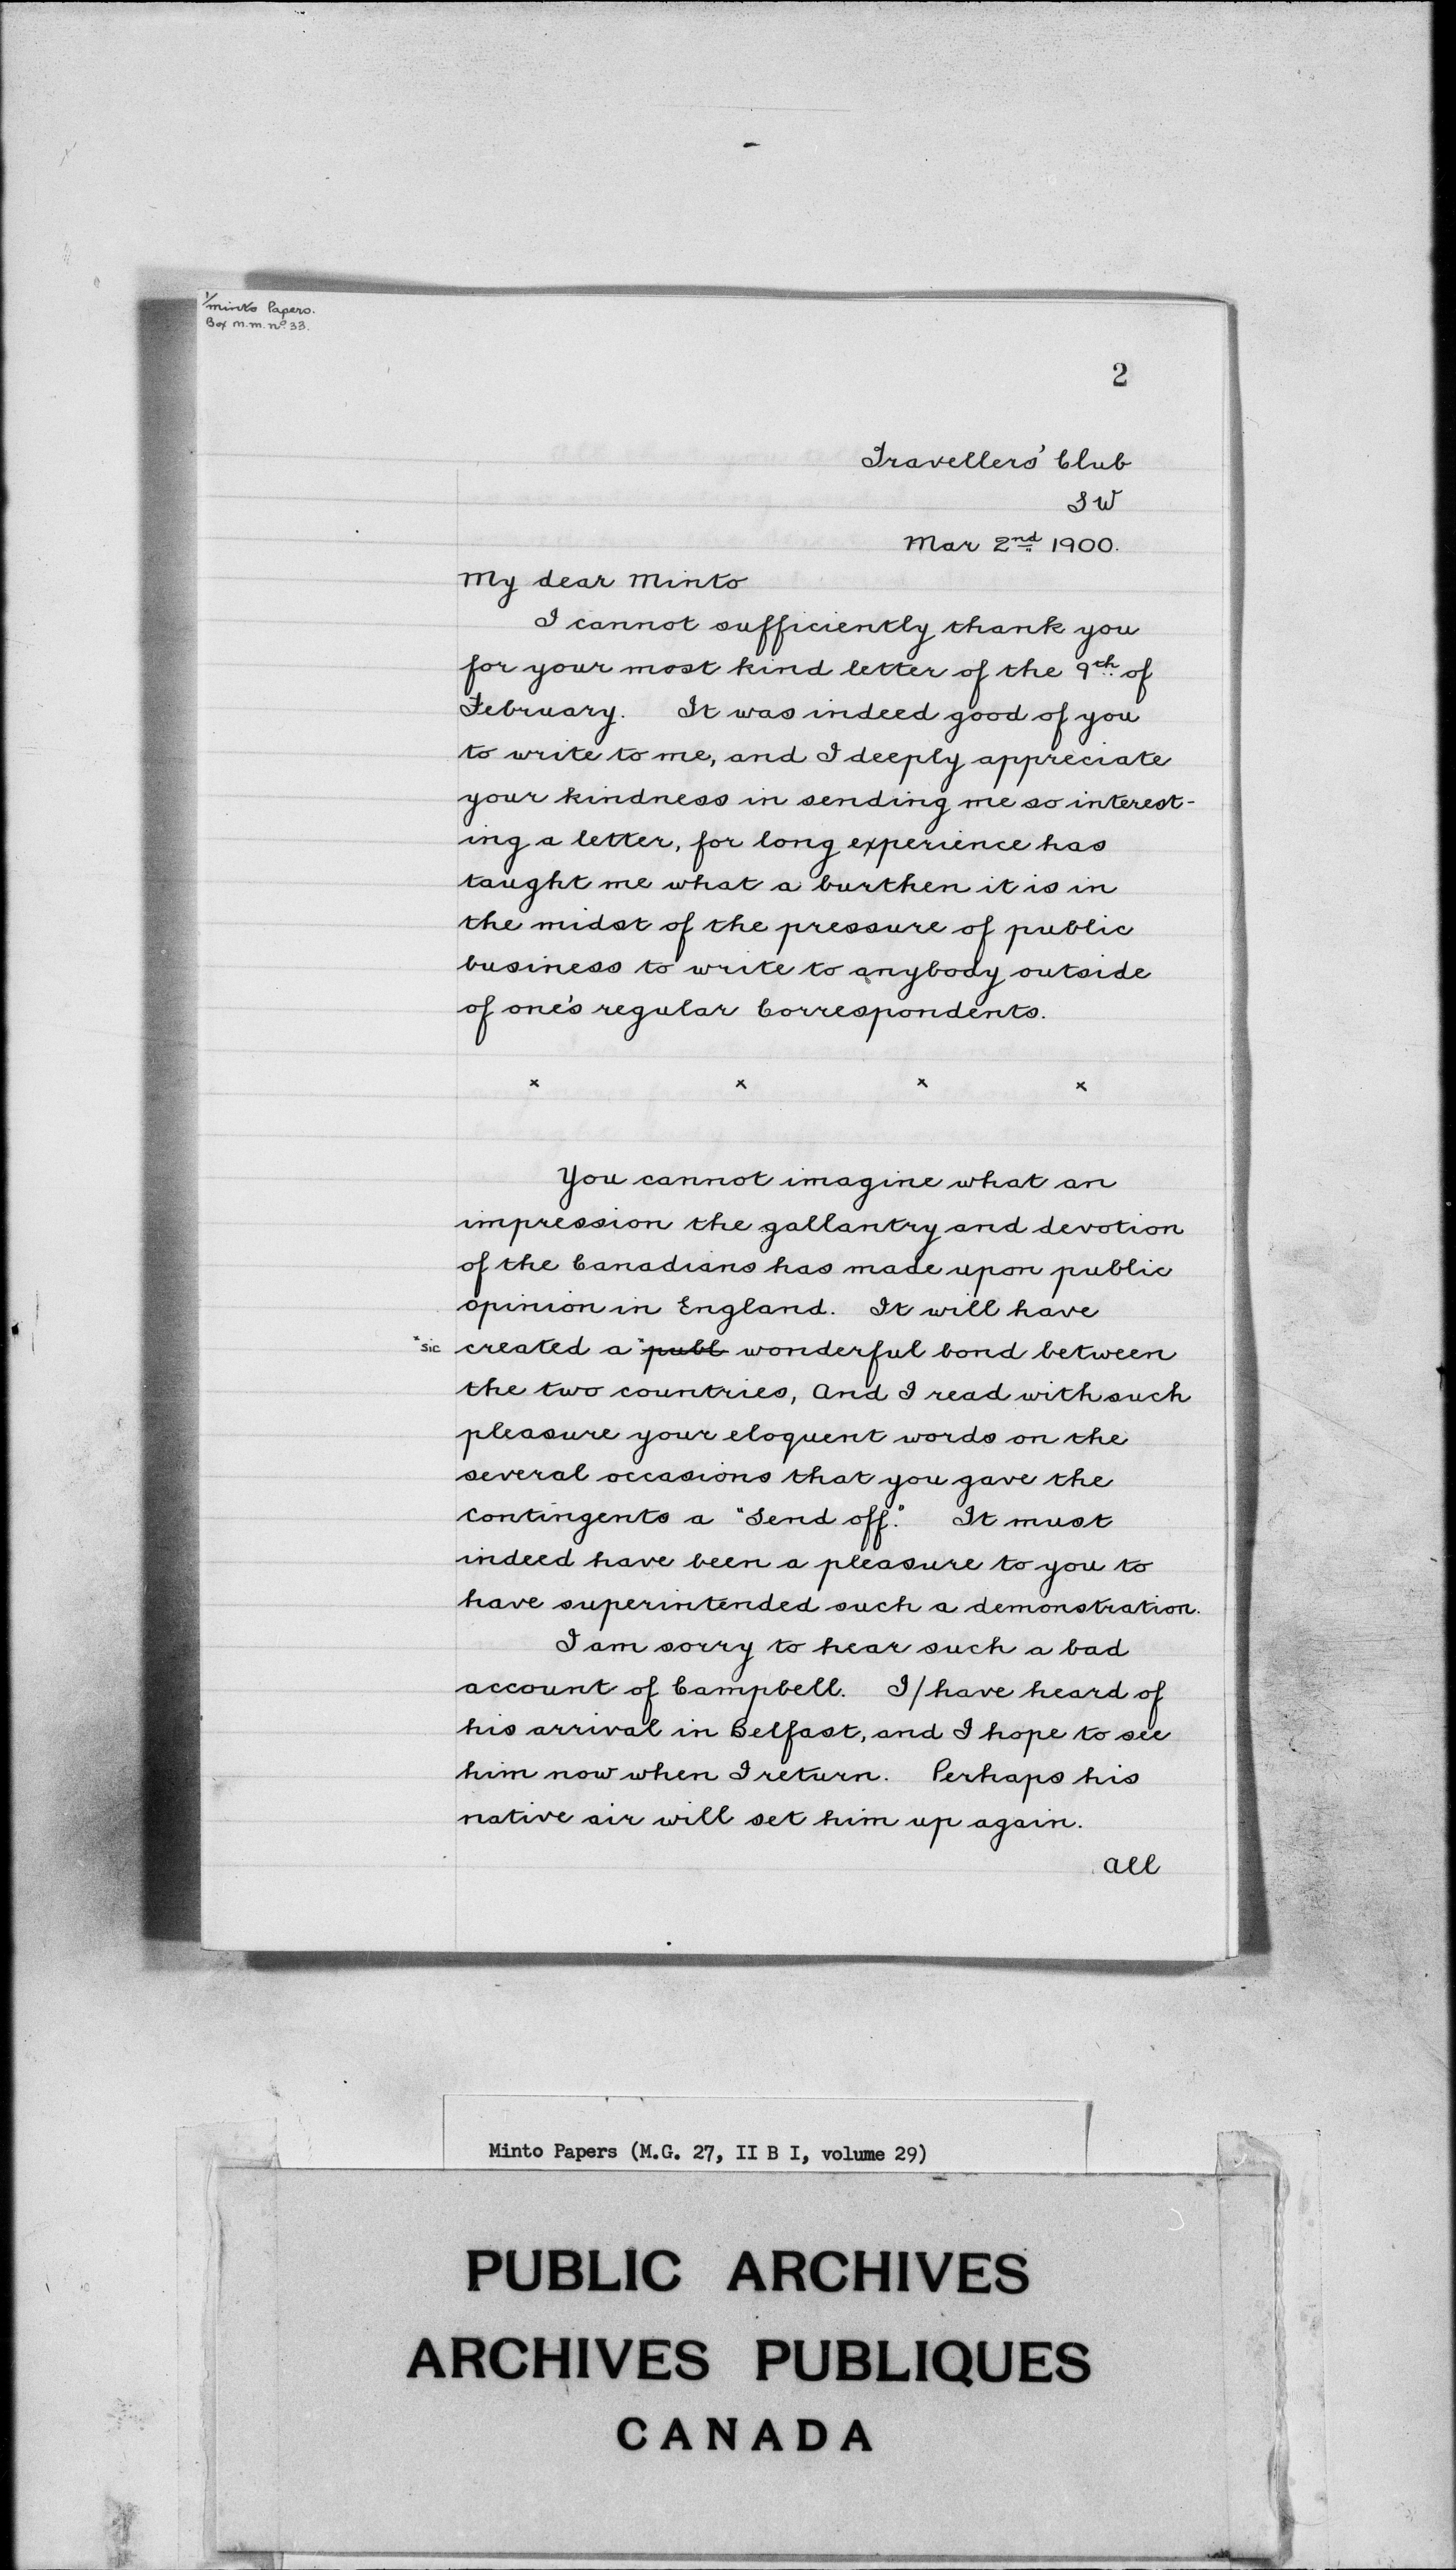 1/Minto Papers.
Box M.M. No. 33.
2
Travellers' Club
S W
Mar 2nd 1900.
My dear Minto
I cannot sufficiently thank you
for your most kind letter of the 9th of
February. It was indeed good of you
to write to me, and I deeply appreciate
your kindness in sending me so interest-
ing a letter, for long experience has
taught me what a burthen it is in
the midst of the pressure of public
business to write to anybody outside
of one's regular Correspondents.
x x x x
You cannot imagine what an
impression the gallantry and devotion
of the Canadians has made upon public
opinion in England. It will have
x sic created a x publ wonderful bond between
the two countries, And I read with such
pleasure your eloquent words on the
several occasions that you gave the
Contingents a "Send off." It must
indeed have been a pleasure to you to
have superintended such a demonstration.
I am sorry to hear such a bad
account of Campbell. I/have heard of
his arrival in Belfast, and I hope to see
him now when I return. Perhaps his
native air will set him up again.
All
Minto Papers (M.G. 27, II B I, volume 29)
PUBLIC ARCHIVES
ARCHIVES PUBLIQUES
CANADA